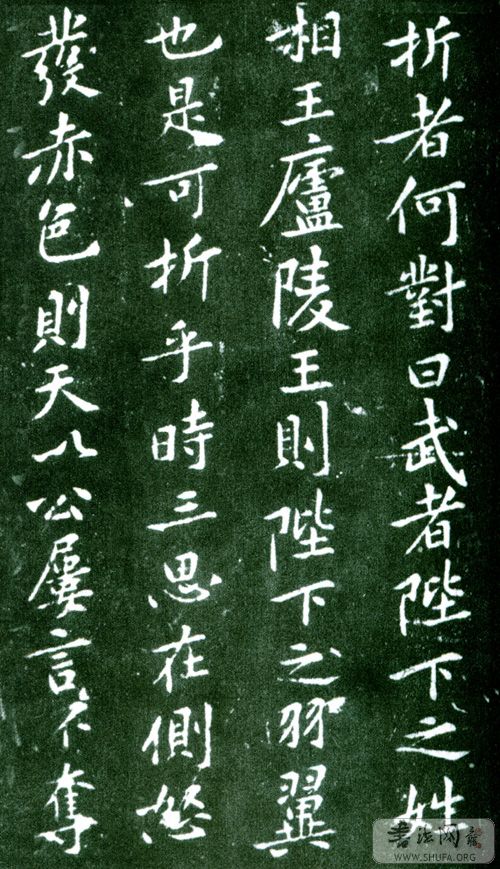 折者何對曰武者陛下之姓
相王廬陵王則陛下之羽翼
也是可折乎時三思在側怒
發赤色則天以公屢言不奪
書法网
WWW.SHUFA.ORG